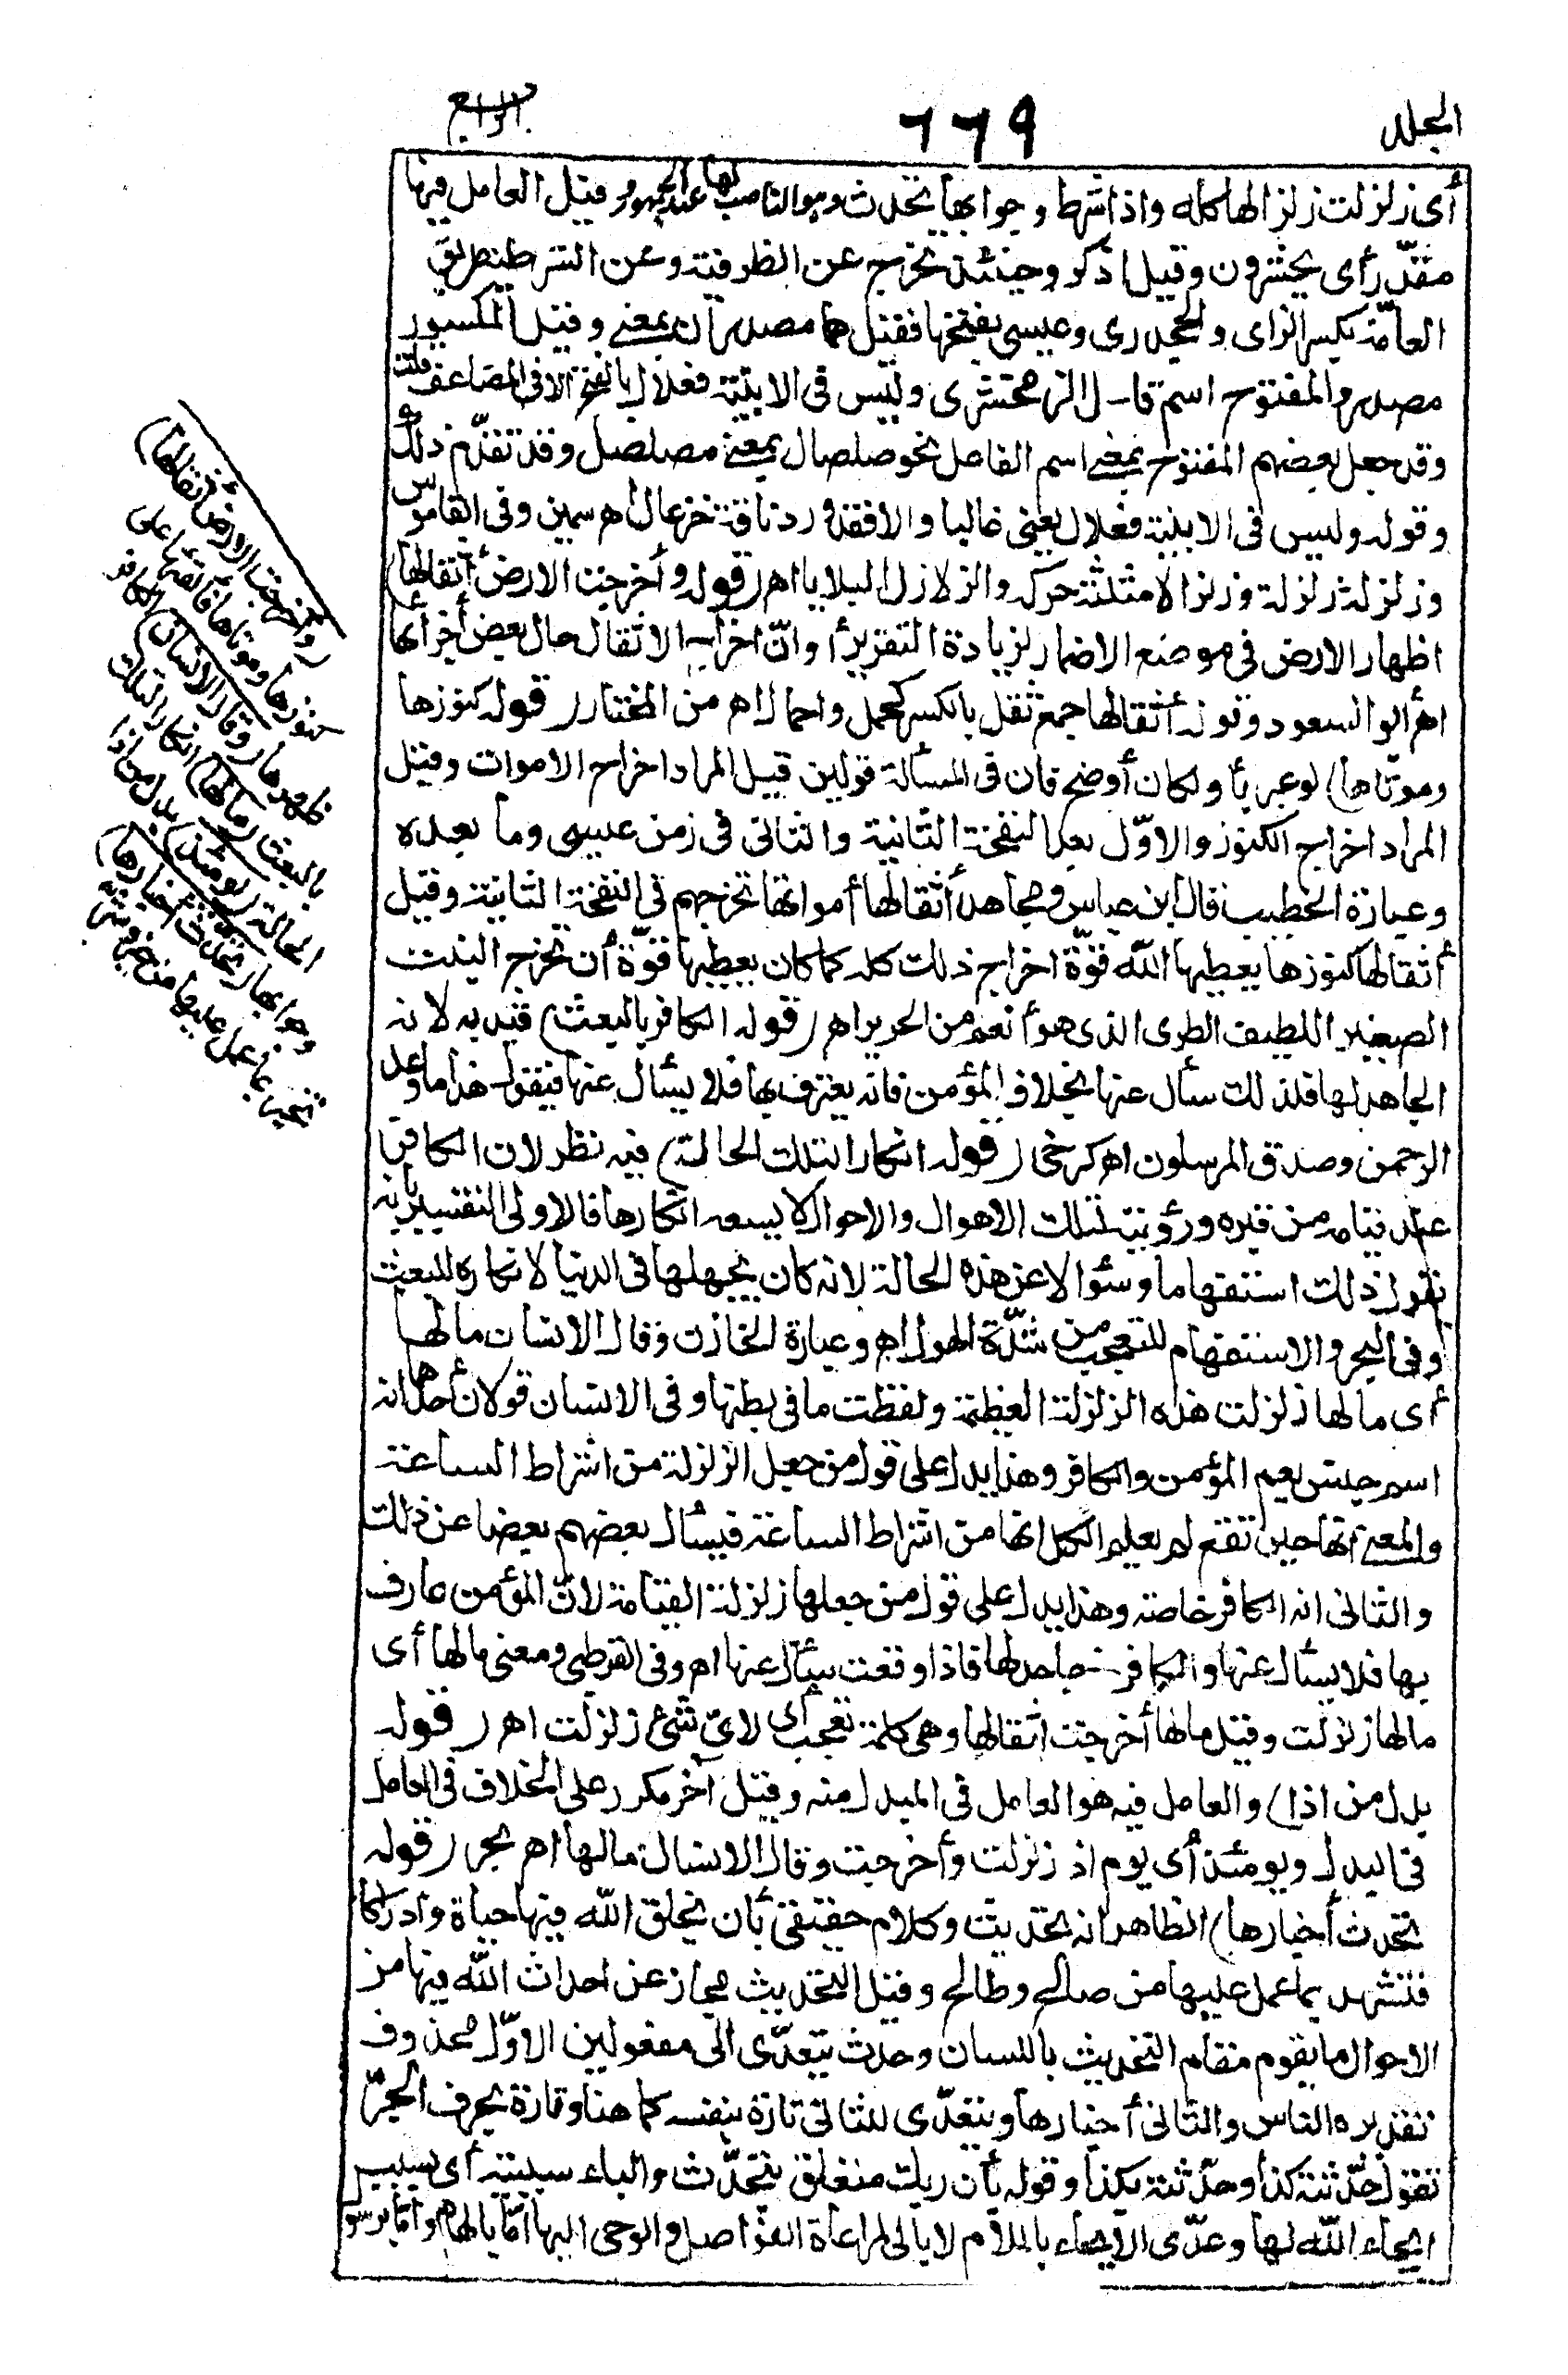 المجلد
٦٦٩
الرابع
أى زلزلت زلزالها كله واذا شرط وجوابها تحدث وهو الناصب لها عند الجمهور وقيل العامل فيها
مقدّر أى يحشرون وقيل اذكر وحينئذ تخرج عن الظرفية وعن الشرط
العامّة بكسر الزاى والجحدرى وعيسى بفتحها فقيل هما مصدران بمعنى وقيل المكسور
مصدر والمفتوح اسم قال الزمخشرى وليس فى الابنية فعلال بالفتح الا فى المضاعف قلت
وقد جعل بعضهم المفتوح بمعنى اسم الفاعل نحو صلصال بمعنى مصلصل وقد تقدّم ذلك
وقوله وليس فى الابنية فعلال يعنى غالبا والا فقد ورد ناقة خزعال اهر سمين وفى القاموس
وزلزله زلزلة وزلزالا مثلثة حركه والزلازل البلايا اهر (قوله وأخرجت الارض أثقالها)
اظهار الارض فى موضع الاضمار لزيادة التقرير أو انّ اخراج الاثقال حال بعض أجزائها
اهر أبو السعود وقوله أثقالها جمع ثقل بالكسر كحمل واحمال اهر من المختار (قوله كنوزها
وموتاها) لو عبر بأو لكان أوضح فان فى المسألة قولين قيل المراد اخراج الاموات وقيل
المراد اخراج الكنوز والاوّل بعد النفخة الثانية والثانى فى زمن عيسى وما بعده
وعبارة الخطيب قال ابن عباس ومجاهد أثقالها أمواتها تخرجهم فى النفخة الثانية وقيل
أثقالها كنوزها يعطيها الله قوّة اخراج ذلك كله كما كان يعطيها قوّة أن تخرج النبت
الصغير اللطيف الطرى الذى هو أنعم من الحرير اهر (قوله الكافر بالبعث) قيد به لانه
الجاحد لها فلذلك سأل عنها بخلاف المؤمن فانه يعترف بها فلا يسأل عنها فيقول هذا ما وعد
الرحمن وصدق المرسلون اهر كرخى (قوله انكارا لتلك الحالة) فيه نظر لان الكافر
عند قيامه من قبره ورؤيته لتلك الاهوال والاحوال لا يسعه انكارها فالاولى التفسير بانه
يقول ذلك استفهاما وسئوالا عن هذه الحالة لانه كان يجهلها فى الدنيا لانكاره للبعث
وفى البحر والاستفهام للتعجب من شدّة الهول اهر وعبارة الخازن وقال الانسان ما لها
أى ما لها زلزلت هذه الزلزلة العظيمة ولفظت ما فى بطنها وفى الانسان قولان أحدهما انه
اسم جنس يعم المؤمن والكافر وهذا يدل على قول من جعل الزلزلة من اشراط الساعة
والمعنى انها حين تقع لم يعلم الكل انها من اشراط الساعة فيسأل بعضهم بعضا عن ذلك
والثانى انه الكافر خاصة وهذا يدل على قول من جعلها زلزلة القيامة لانّ المؤمن عارف
بها فلا يسأل عنها والكافر جاحد لها فاذا وقعت سأل عنها اهر وفى القرطبى ومعنى ما لها أى
ما لها زلزلت وقيل ما لها أخرجت اثقالها وهى كلمة تعجب أى لاىّ شئ زلزلت اهر (قوله
بدل من اذا) والعامل فيه هو العامل فى المبدل منه وقيل آخر مكرر على الخلاف فى العامل
فى البدل ويومئذ أى يوم اذ زلزلت وأخرجت وقال الانسان ما لها اهر بحر (قوله
تحدث أخبارها) الظاهر انه تحديث وكلام حقيقىّ بأن يخلق الله فيها حياة وادراكا
فتشهد بما عمل عليها من صالح وطالح وقيل التحديث مجاز عن احداث الله فيها من
الاحوال ما يقوم مقام التحديث باللسان وحدث يتعدّى الى مفعولين الاوّل محذوف
تقديره الناس والثانى أخبارها ويتعدّى للثانى تارة بنفسه كما هنا وتارة بحرف الجرّ
تقول حدّثته كذا وحدّثته بكذا وقوله بأن ربك متعلق بتحدّث والباء سببية أى بسبب
ايحاء الله لها وعدّى الايحاء باللام لا بالى لمراعاة الفواصل والوحى اليها امّا بالهام وامّا برسو
(وأخرجت الارض أثقالها)
كنوزها وموتاها فألقتها على
ظهرها (وقال الانسان) الكافر
بالبعث (ما لها) انكارا لتلك
الحالة (يومئذ) بدل من اذا
وجوابها (تحدث أخبارها)
تخبر بما عمل عليها من خير وشر